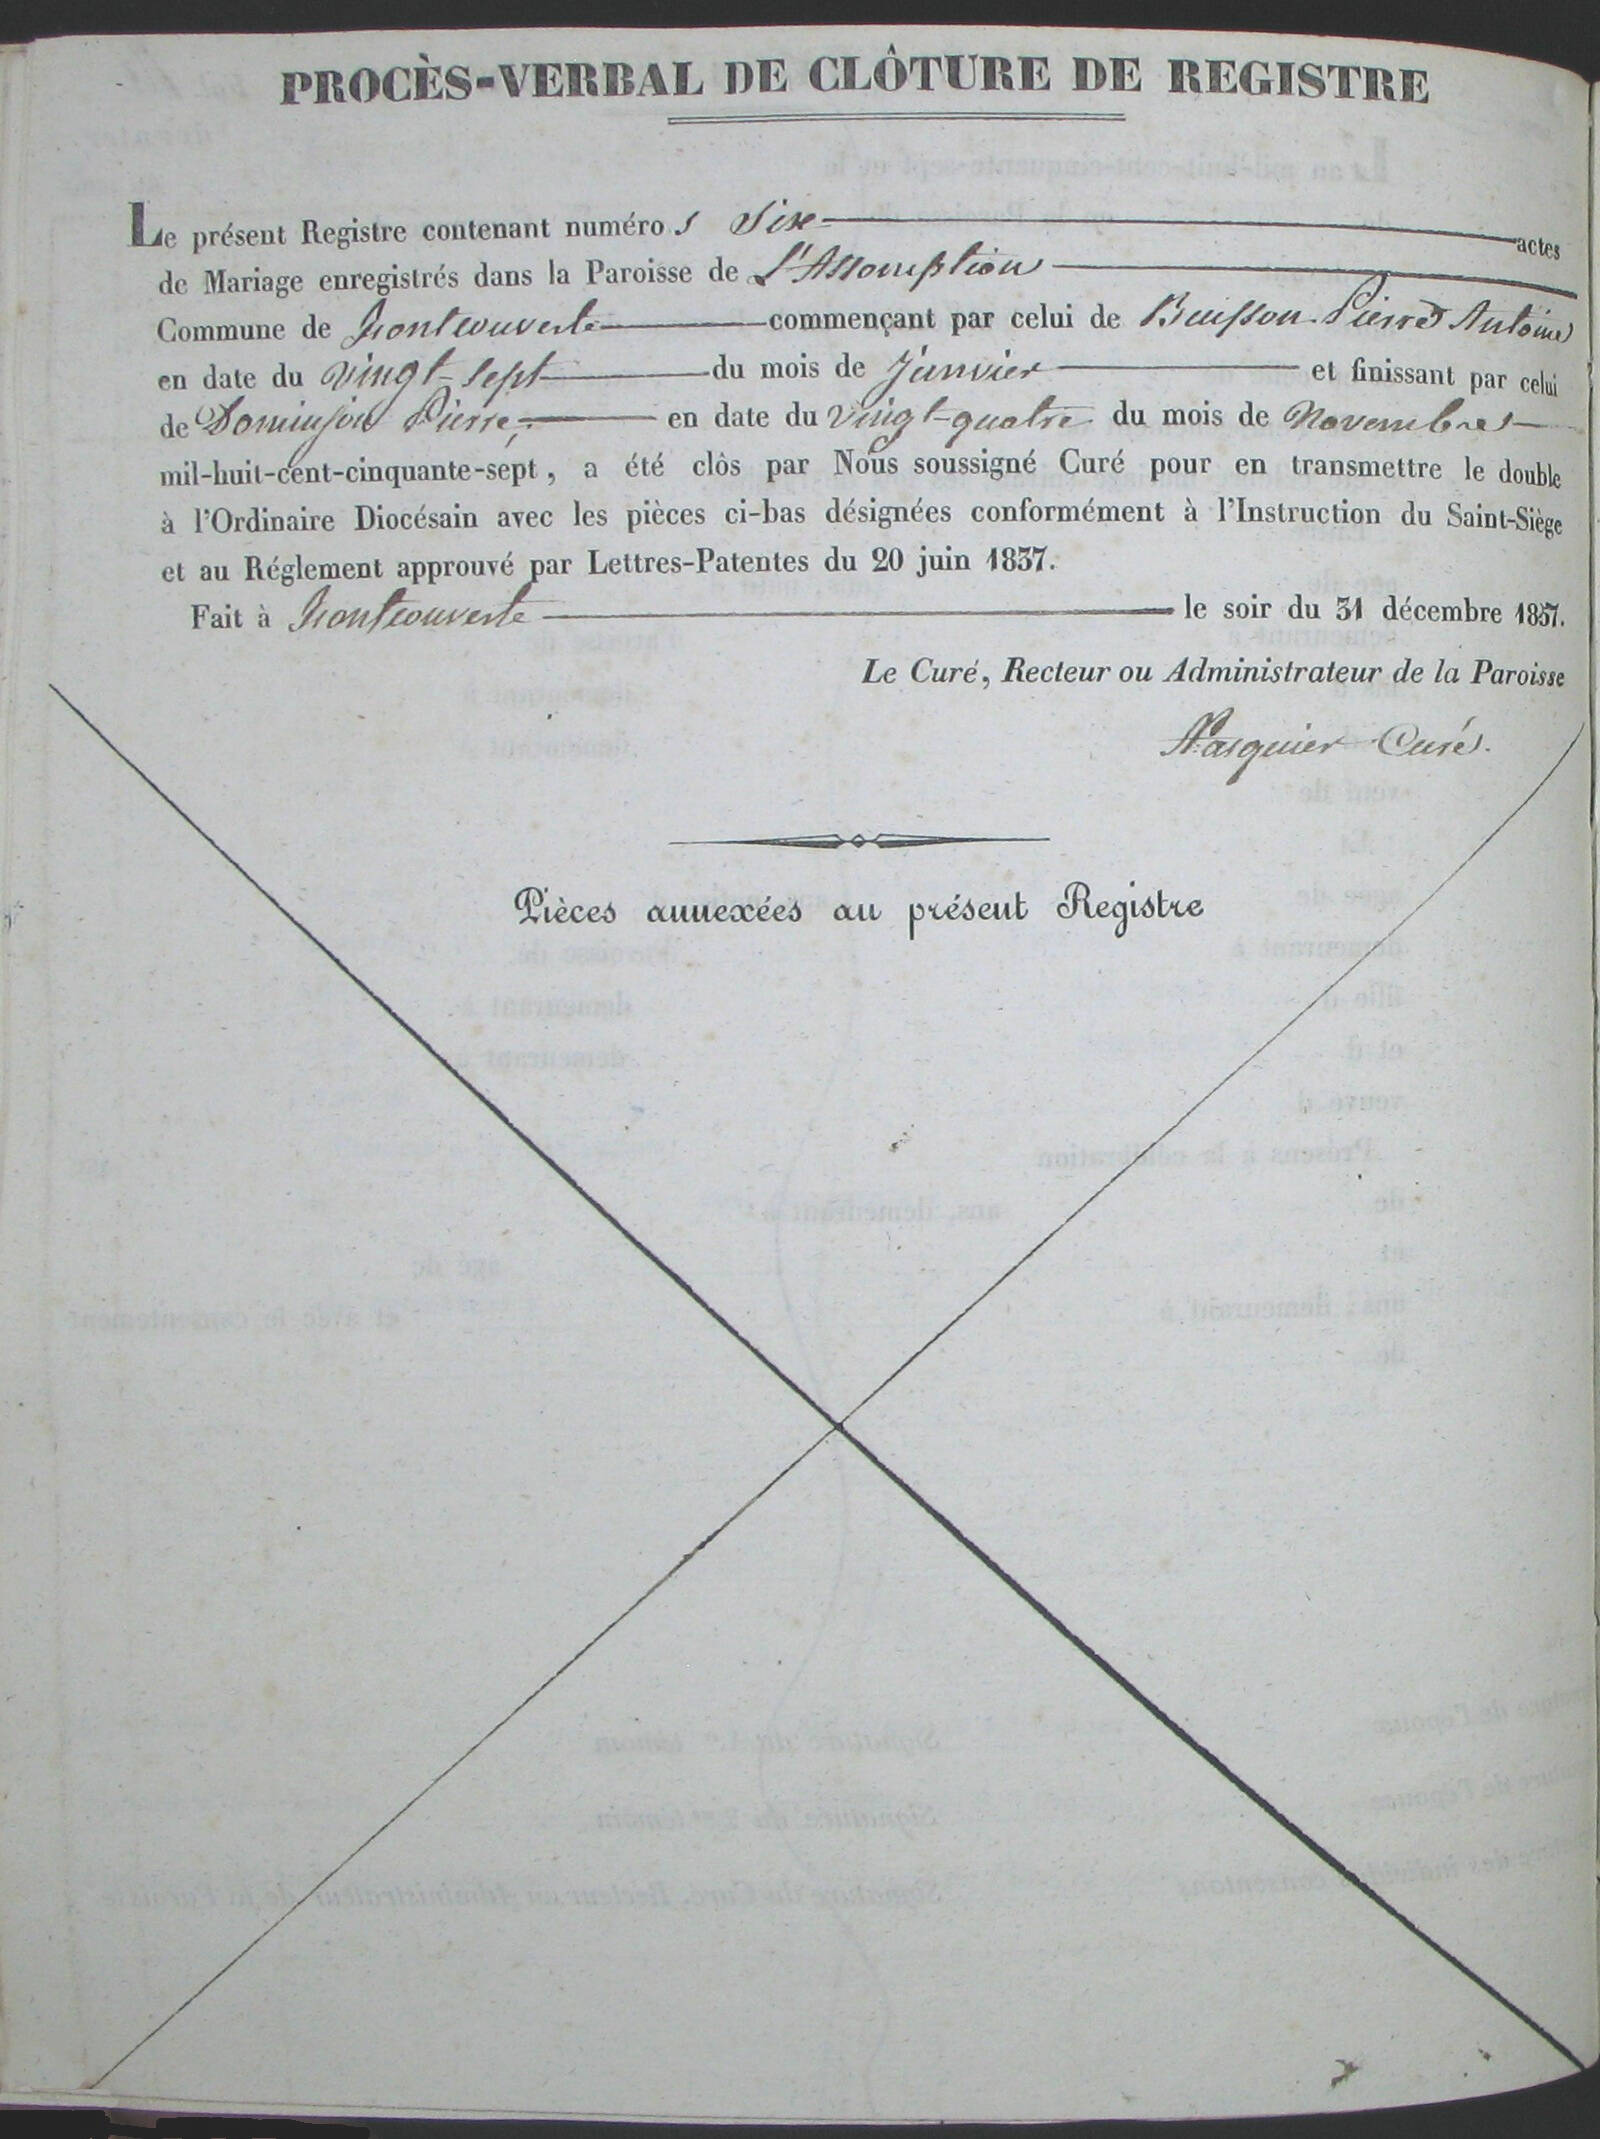 PROCÈS-VERBAL DE CLÔTURE DE REGISTRE
Le présent Registre contenant numéro s Six actes
de Mariage enregistrés dans la Paroisse de L'Assomption
Commune de Montcouverte commençant par celui de Buisson Pierre Antoine
en date du vingt-sept du mois de Janvier et finissant par celui
de Dominjon Pierre, en date du vingt-quatre du mois de Novembre
mil-huit-cent-cinquante-sept, a été clòs par Nous soussigné Curé pour en transmettre le double
à l'Ordinaire Diocésain avec les pièces ci-bas désignées conformément à l'Instruction du Saint-Siège
et au Réglement approuvé par Lettres-Patentes du 20 juin 1837.
Fait à Montcouverte le soir du 31 décembre 1857.
Le Curé, Recteur ou Administrateur de la Paroisse
Pasquier Curé.
Pièces annexées au présent Registre